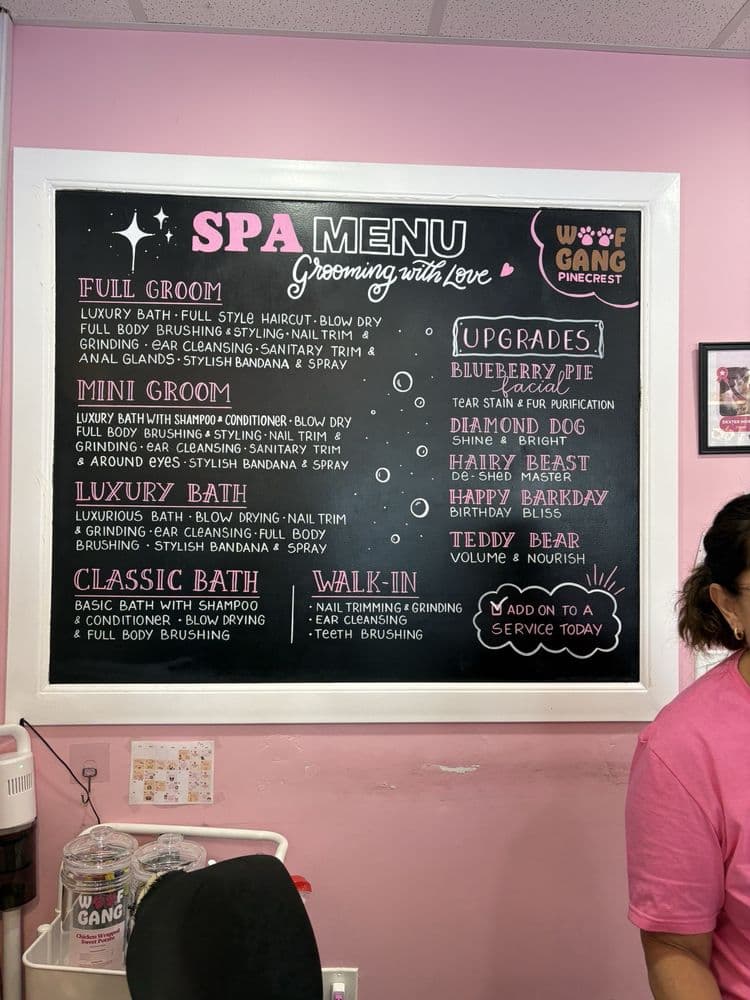 SPA MENU
Grooming with Love
WOOF
GANG
PINECREST
FULL GROOM
LUXURY BATH · FULL STYLE HAIRCUT · BLOW DRY
FULL BODY BRUSHING & STYLING · NAIL TRIM &
GRINDING · EAR CLEANSING · SANITARY TRIM &
ANAL GLANDS · STYLISH BANDANA & SPRAY
MINI GROOM
LUXURY BATH WITH SHAMPOO & CONDITIONER · BLOW DRY
FULL BODY BRUSHING & STYLING · NAIL TRIM &
GRINDING · EAR CLEANSING · SANITARY TRIM
& AROUND EYES · STYLISH BANDANA & SPRAY
LUXURY BATH
LUXURIOUS BATH · BLOW DRYING · NAIL TRIM
& GRINDING · EAR CLEANSING · FULL BODY
BRUSHING · STYLISH BANDANA & SPRAY
CLASSIC BATH
BASIC BATH WITH SHAMPOO
& CONDITIONER · BLOW DRYING
& FULL BODY BRUSHING
WALK-IN
· NAIL TRIMMING & GRINDING
· EAR CLEANSING
· TEETH BRUSHING
UPGRADES
BLUEBERRY PIE
facial
TEAR STAIN & FUR PURIFICATION
DIAMOND DOG
SHINE & BRIGHT
HAIRY BEAST
DE-SHED MASTER
HAPPY BARKDAY
BIRTHDAY BLISS
TEDDY BEAR
VOLUME & NOURISH
ADD ON TO A
SERVICE TODAY
WOOF
GANG
Chicken Wrapped
Sweet Potato